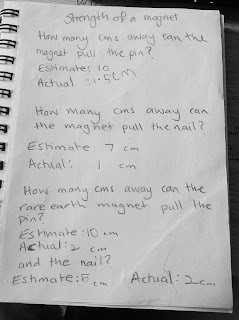 Strength of a magnet.
How many cms away can the
magnet pull the pin?
Estimate: 10
Actual : 1.5cm
How many cms away can
the magnet pull the nail?
Estimate: 7 cm
Actual: 1 cm
How many cms away can the
rare earth magnet pull the
pin?
Estimate: 10 cm
Actual: 2 cm
and the nail?
Estimate: 5 cm Actual: 2cm